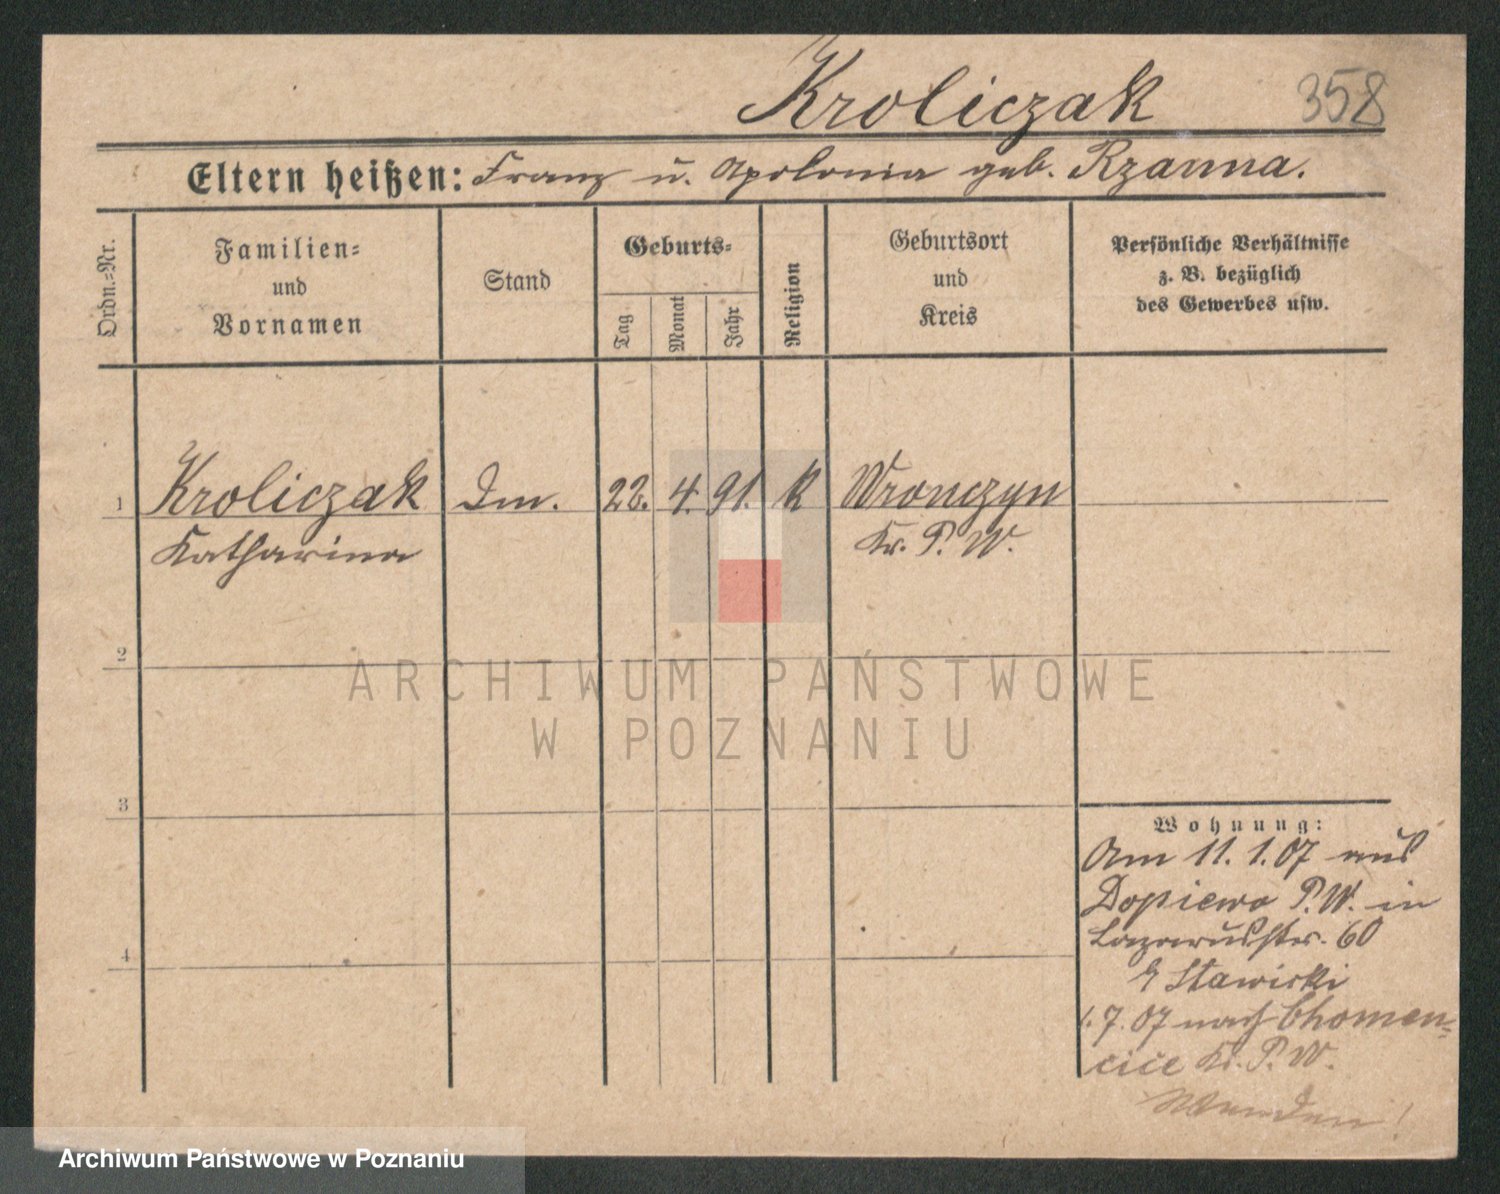 Kroliczak 358
Eltern heißen: Franz u. Apolonia geb. Rzanna.
Ordn.=Nr.
Familien=
und
Vornamen
Stand
Geburts=
Tag
Monat
Jahr
Religion
Geburtsort
und
Kreis
Persönliche Verhältnisse
z. B. bezüglich
des Gewerbes usw.
1 Kroliczak Dm. 22. 4. 91. k Wronczyn
Katharina Kr. P. W.
2
3
4
Wohnung:
Am 11. 1. 07 aus
Dopiewo P. W. in
Lazarusstr. 60
Stawiski
1. 7. 07 nach Chomen=
cice Kr. P. W.
Wenden!
ARCHIWUM PAŃSTWOWE
W POZNANIU
Archiwum Państwowe w Poznaniu